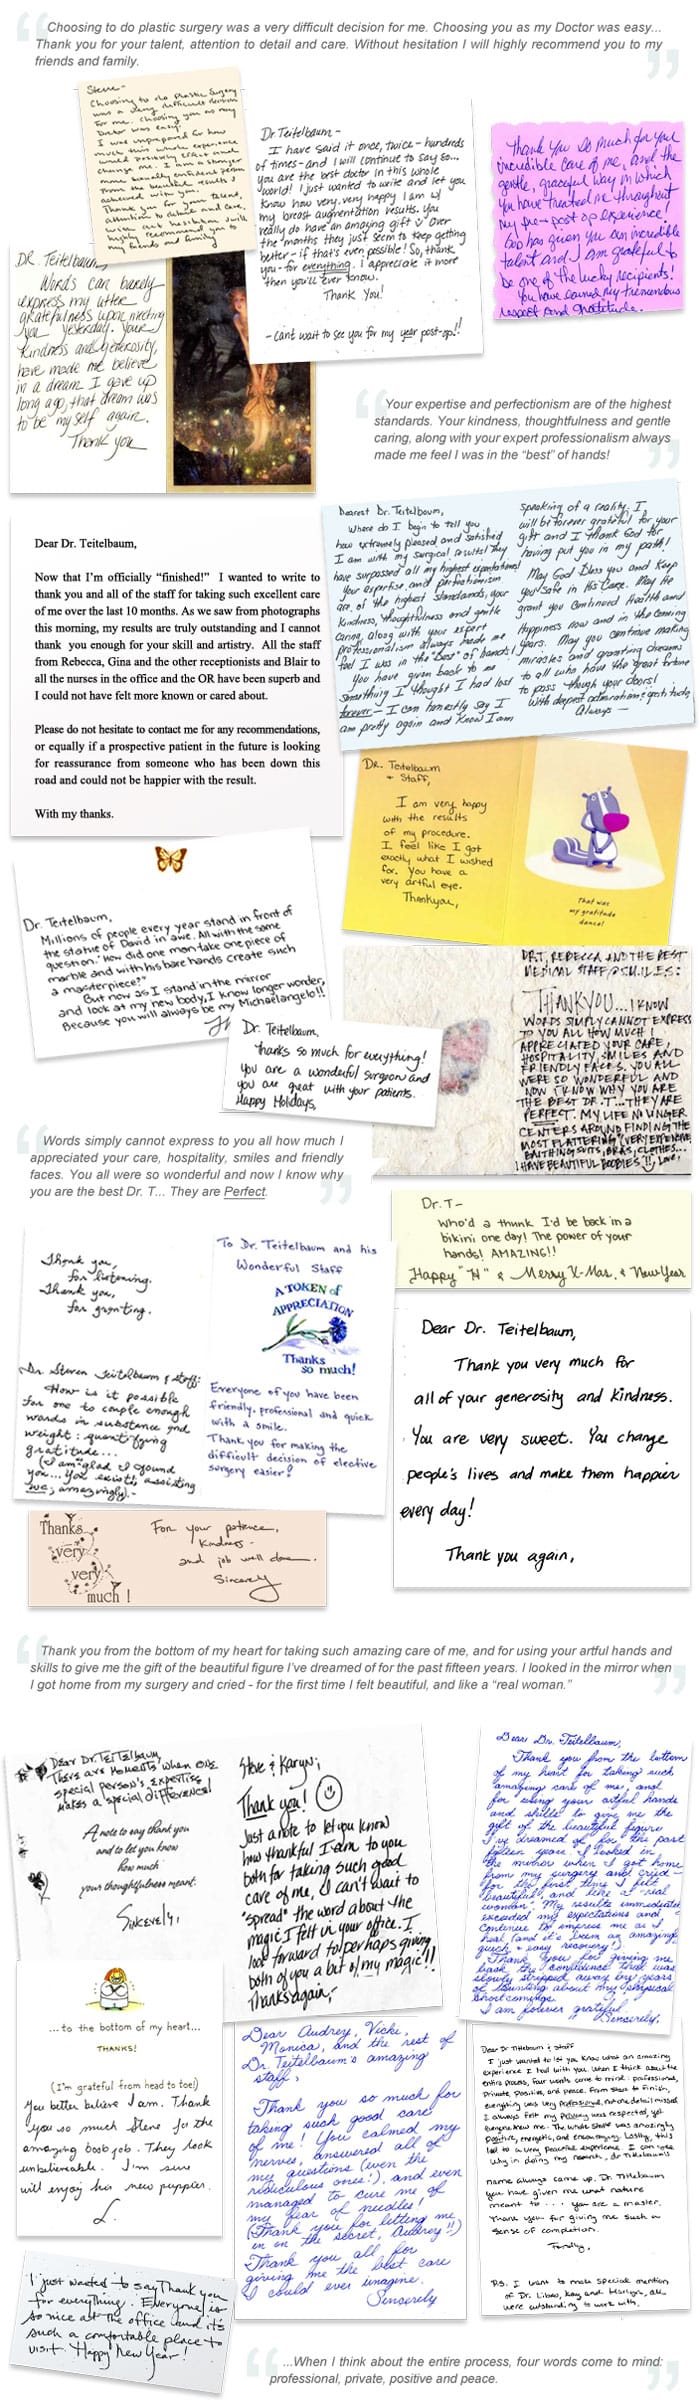 Choosing to do plastic surgery was a very difficult decision for me. Choosing you as my Doctor was easy...
Thank you for your talent, attention to detail and care. Without hesitation I will highly recommend you to my
friends and family.
Steve-
Choosing to do Plastic Surgery
was a very difficult decision
for me. Choosing you as my
Doctor was easy.
I was unprepared for how
much this whole experience
would positively effect and
change me. I am a stronger
more sexually confident person
from the beautiful results I
achieved with you.
Thank you for your talent,
attention to detail and care.
With out hesitation I will
highly recommend you to
my friends and family
Dr. Teitelbaum-
I have said it once, twice - hundreds
of times - and I will continue to say so...
you are the best doctor in this whole
world! I just wanted to write and let you
know how very, very happy I am w/
my breast augmentation results. You
really do have an amazing gift Over
the months they just seem to keep getting
better - if that's even possible! So, thank
you - for everything. I appreciate it more
then you'll ever know.
Thank You!
- Can't wait to see you for my year post-op!!
Thank you so much for your
incredible care of me, and the
gentle, graceful way in which
you have treated me throughout
my pre + post op experience!
God has given you an incredible
talent and I am grateful to
be one of the lucky recipients!
You have earned my tremendous
respect and gratitude.
DR. Teitelbaum,
Words can barely
express my utter
gratefulness upon meeting
you yesterday. Your
kindness and generosity,
have made me believe
in a dream I gave up
long ago, that dream was
to be my self again.
Thank you
Your expertise and perfectionism are of the highest
standards. Your kindness, thoughtfulness and gentle
caring, along with your expert professionalism always
made me feel I was in the “best” of hands!
Dearest Dr. Teitelbaum,
Where do I begin to tell you
how extremely pleased and satisfied
I am with my surgical results! They
have surpassed all my highest expectations!
Your expertise and perfectionism
are of the highest standards, your
kindness, thoughtfulness and gentle
caring along with your expert
professionalism always made me
feel I was in the "best" of hands!
You have given back to me
something I thought I had lost
forever - I can honestly say I
am pretty again and know I am
speaking of a reality. I
will be forever grateful for your
gift and I thank God for
having put you in my path!
May God Bless you and keep
you safe in His Care. May He
grant you continued Health and
Happiness now and in the coming
years. May you continue making
miracles and granting dreams
to all who have the great fortune
to pass though your doors!
With deepest admiration & gratitude,
Always -
Dear Dr. Teitelbaum,
Now that I’m officially “finished!” I wanted to write to
thank you and all of the staff for taking such excellent care
of me over the last 10 months. As we saw from photographs
this morning, my results are truly outstanding and I cannot
thank you enough for your skill and artistry. All the staff
from Rebecca, Gina and the other receptionists and Blair to
all the nurses in the office and the OR have been superb and
I could not have felt more known or cared about.
Please do not hesitate to contact me for any recommendations,
or equally if a prospective patient in the future is looking
for reassurance from someone who has been down this
road and could not be happier with the result.
With my thanks.
Dr. Teitelbaum
+ Staff,
I am very happy
with the results
of my procedure.
I feel like I got
exactly what I wished
for. You have a
very artful eye.
Thankyou,
That was
my gratitude
dance!
Dr. Teitelbaum,
Millions of people every year stand in front of
the statue of David in awe. All with the same
question. "How did one man take one piece of
marble and with his bare hands create such
a masterpiece?"
But now as I stand in the mirror
and look at my new body, I know longer wonder,
Because you will always be my Michaelangelo!!
Dr. Teitelbaum,
Thanks so much for everything!
You are a wonderful surgeon and
you are great with your patients.
Happy Holidays,
DR T, REBECCA AND THE BEST
MEDICAL STAFF @ S.M. ILES:
THANKYOU... I KNOW
WORDS SIMPLY CANNOT EXPRESS
TO YOU ALL HOW MUCH I
APPRECIATED YOUR CARE,
HOSPITALITY, SMILES AND
FRIENDLY FACES. YOU ALL
WERE SO WONDERFUL AND
NOW I KNOW WHY YOU ARE
THE BEST DR. T... THEY ARE
PERFECT. MY LIFE NO LONGER
CENTERS AROUND FINDING THE
MOST FLATTERING (VERY EXPENSIVE)
BAITHING SUITS, BRAS, CLOTHES...
I HAVE BEAUTIFUL BOOBIES!! LOVE,
Words simply cannot express to you all how much I
appreciated your care, hospitality, smiles and friendly
faces. You all were so wonderful and now I know why
you are the best Dr. T... They are Perfect.
Dr. T-
Who'd a thunk I'd be back in a
bikini one day! The power of your
hands! AMAZING!!
Happy "H" & Merry X-Mas, & New Year
Thank you,
for listening.
Thank you,
for granting.
Dr. Steven Teitelbaum & staff:
How is it possible
for one to couple enough
words in substance and
weight: quantifying
gratitude...
(I am glad I found
you... You exist, assisting
me; amazingly).-
To Dr. Teitelbaum and his
Wonderful Staff
A TOKEN of
APPRECIATION
Thanks
so much!
Everyone of you have been
friendly, professional and quick
with a smile.
Thank you for making the
difficult decision of elective
surgery easier!
Dear Dr. Teitelbaum,
Thank you very much for
all of your generosity and kindness.
You are very sweet. You change
people's lives and make them happier
every day!
Thank you again,
Thanks
very
very
much!
For your patience,
kindness -
and job well done.
Sincerely
Thank you from the bottom of my heart for taking such amazing care of me, and for using your artful hands and
skills to give me the gift of the beautiful figure I’ve dreamed of for the past fifteen years. I looked in the mirror when
I got home from my surgery and cried - for the first time I felt beautiful, and like a “real woman.”
Dear Dr. Teitelbaum,
There are moments when one
special person's expertise
makes a special difference!
A note to say thank you
and to let you know
how much
your thoughtfulness meant.
Sincerely,
Steve & Karyn;
Thank you!
Just a note to let you know
how thankful I am to you
both for taking such good
care of me, I can't wait to
"spread" the word about the
magic I felt in your office. I
look forward to perhaps giving
both of you a bit of my magic!!
Thanks again,
Dear Dr. Teitelbaum,
Thank you from the bottom
of my heart for taking such
amazing care of me, and
for using your artful hands
and skills to give me the
gift of the beautiful figure
I've dreamed of for the past
fifteen years. I looked in
the mirror when I got home
from my surgery and cried -
for the first time I felt
beautiful, and like a "real
woman." My results immediately
exceeded my expectations and
continue to impress me as I
heal (and it's been an amazingly
quick + easy recovery!)
Thank you for giving me
back the confidence that was
slowly stripped away by years
of taunting about my physical
shortcomings.
I am forever grateful.
Sincerely,
...to the bottom of my heart...
THANKS!
(I'm grateful from head to toe!)
You better believe I am. Thank
you so much Steve for the
amazing boob job. They look
unbelievable. I'm sure
will enjoy his new puppies.
L.
Dear Audrey, Vicki,
Monica, and the rest of
Dr. Teitelbaum's amazing
staff,
Thank you so much for
taking such good care
of me! You calmed my
nerves, answered all of
my questions (even the
ridiculous ones!), and even
managed to cure me of
my fear of needles!
(Thank you for letting me
in on the secret, Audrey!!)
Thank you all for
giving me the best care
I could ever imagine.
Sincerely
Dear Dr Titlebaum & staff
I just wanted to let you know what an amazing
experience I had with you. When I think about the
entire process, four words come to mind: professional,
private, positive, and peace. From start to finish,
everything was very professional, not one detail missed
I always felt my privacy was respected, yet
everyone knew me. The whole staff was amazingly
positive, energetic, and encouraging. Lastly, this
led to a very peaceful experience. I can see
why in doing my research, dr Titlebaum's
name always came up. Dr. Titlebaum
you have given me what nature
meant to .... you are a master.
Thank you for giving me such a
sense of completion.
Fondly,
P.S. I want to make special mention
of Dr. Libao, Kay and Marilyn, all
were outstanding to work with.
I just wanted to say Thank you
for everything. Everyone is
so nice at the office and it's
such a comfortable place to
visit. Happy New Year!
...When I think about the entire process, four words come to mind:
professional, private, positive and peace.